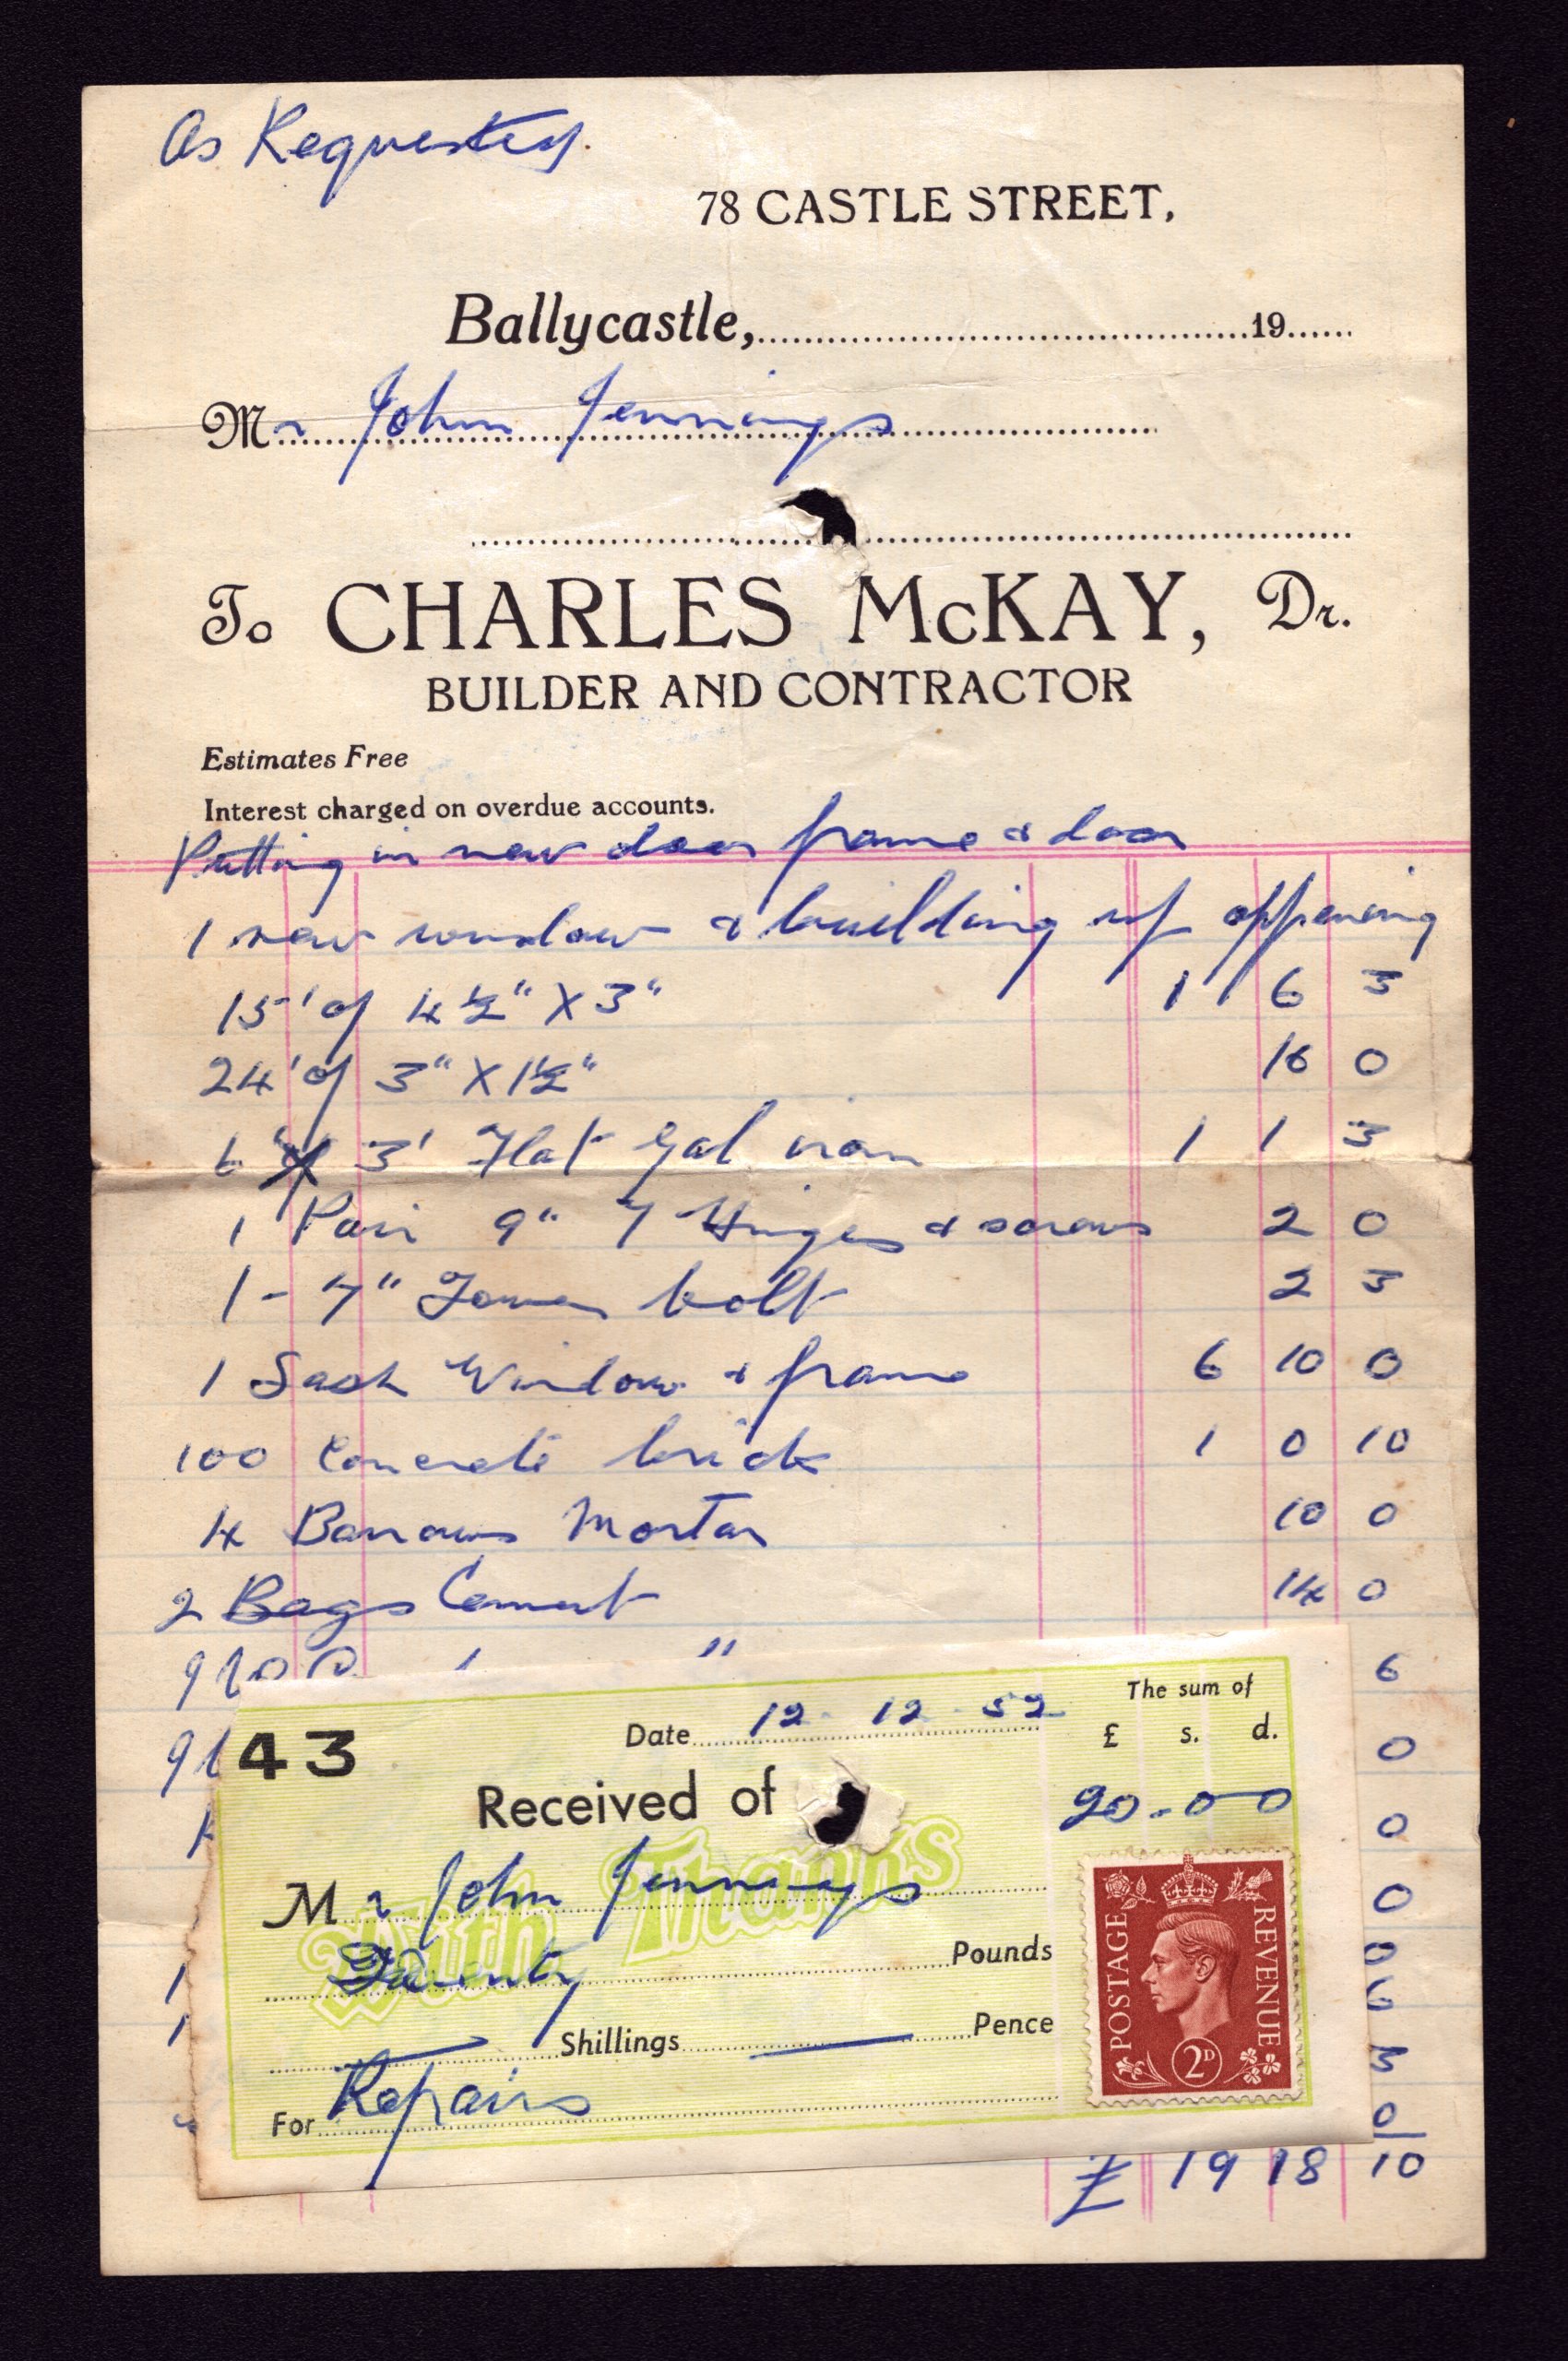 As Requested.
78 CASTLE STREET,
Ballycastle, 19
Mr John Jennings
To CHARLES McKAY, Dr.
BUILDER AND CONTRACTOR
Estimates Free
Interest charged on overdue accounts.
Putting in new door frame & door
1 new window & building up oppening
15' of 4½" X 3" 1 1 6 3
24' of 3" X 1½" 16 0
6 3' Flat Gal iron 1 1 3
1 Pair 9" T Hinges & screws 2 0
1 - 7" Tower bolt 2 3
1 Sash Window & frame 6 10 0
100 Concrete brick 1 0 10
4 Barrows Mortar 10 0
2 Bags Cement 14 0
" 6
0
0
0
1 0
1 6
3
0
£ 19 18 10
43
Date 12 - 12 - 52
The sum of
£ s. d.
Received of
20 - 0 0
With Thanks
Mr John Jennings
Twenty Pounds
Shillings Pence
For Repairs
POSTAGE REVENUE
2D